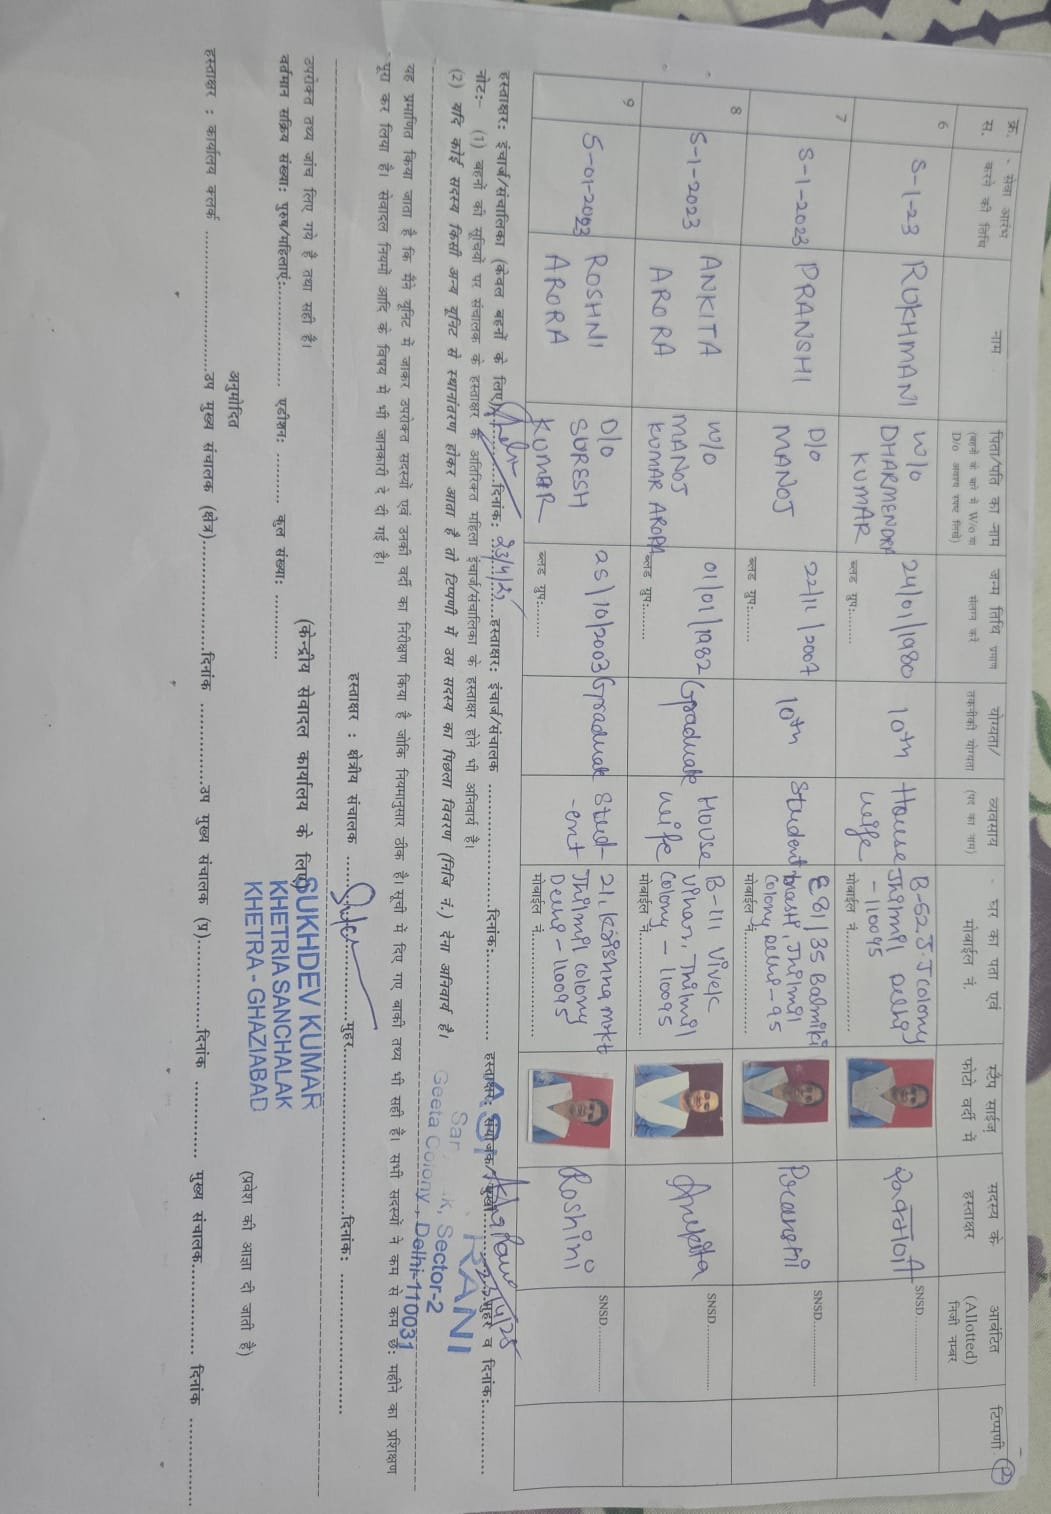 (2)
क्र. स.
सेवा आरंभ करने की तिथि
नाम
पिता/पति का नाम
(बहनों के बारे में W/o या D/o अवश्य स्पष्ट लिखें)
जन्म तिथि प्रमाण संलग्न करें
योग्यता/ तकनीकी योग्यता
व्यवसाय (पद का नाम)
घर का पता एवं मोबाईल नं.
स्टैंप साईज़ फोटो वर्दी में
सदस्य के हस्ताक्षर
आबंटित (Allotted) निजी नम्बर
टिप्पणी
6
5-1-23
RUKHMANI
W/o DHARMENDRA KUMAR
24/01/1980
ब्लड ग्रुप:.......
10th
House wife
B-52 J.J colony Jhilmil Delhi - 110095
मोबाईल नं.....................
रूकमणी
SNSD..................
7
5-1-2023
PRANSHI
D/o MANOJ
22/11/2007
ब्लड ग्रुप:.......
10th
Student
E 81/35 Balmiki basti, Jhilmil colony Delhi-95
मोबाईल नं.....................
Pranshi
SNSD..................
8
5-1-2023
ANKITA ARORA
W/o MANOJ KUMAR ARORA
01/01/1982
ब्लड ग्रुप:.......
Graduate
House wife
B-111 Vivek Vihar, Jhilmil Colony - 110095
मोबाईल नं.....................
Ankita
SNSD..................
9
5-01-2023
ROSHNI ARORA
D/o SURESH KUMAR
25/10/2003
ब्लड ग्रुप:.......
Graduate
Stud-ent
21, Krishna mrkt Jhilmil colony Delhi - 110095
मोबाईल नं.....................
Roshini
SNSD..................
हस्ताक्षर: इंचार्ज/संचालिका (केवल बहनों के लिए)..........दिनांक:..........हस्ताक्षर: इंचार्ज/संचालक ....................दिनांक:............ हस्ताक्षर: संयोजक/मुखी..........मुहर व दिनांक:............
नोट:- (1) बहनों की सूचियों पर संचालक के हस्ताक्षर के अतिरिक्त महिला इंचार्ज/संचालिका के हस्ताक्षर होने भी अनिवार्य है।
(2) यदि कोई सदस्य किसी अन्य यूनिट से स्थानांतरण होकर आता है तो टिप्पणी में उस सदस्य का पिछला विवरण (निजि नं.) देना अनिवार्य है।
RANI
Sector-2
Geeta Colony, Delhi-110031
यह प्रमाणित किया जाता है कि मैंने यूनिट में जाकर उपरोक्त सदस्यों एवं उनकी वर्दी का निरीक्षण किया है जोकि नियमानुसार ठीक है। सूची में दिए गए बाकी तथ्य भी सही है। सभी सदस्यों ने कम से कम छै: महीने का प्रशिक्षण
पूरा कर लिया है। सेवादल नियमों आदि के विषय में भी जानकारी दे दी गई है।
हस्ताक्षर : क्षेत्रीय संचालक ....................मुहर..............................दिनांक: .........................
(केन्द्रीय सेवादल कार्यालय के लिए)
SUKHDEV KUMAR
KHETRIA SANCHALAK
KHETRA - GHAZIABAD
उपरोक्त तथ्य जांच लिए गये है तथा सही है।
वर्तमान सक्रिय संख्या: पुरुष/महिलाएं:.................... एडीशन: .......... कुल संख्या: ............
अनुमोदित
(प्रवेश की आज्ञा दी जाती है)
हस्ताक्षर : कार्यालय क्लर्क ..........................उप मुख्य संचालक (क्षेत्र)....................दिनांक ...............उप मुख्य संचालक (प्र)...............दिनांक ............... मुख्य संचालक................ दिनांक .................